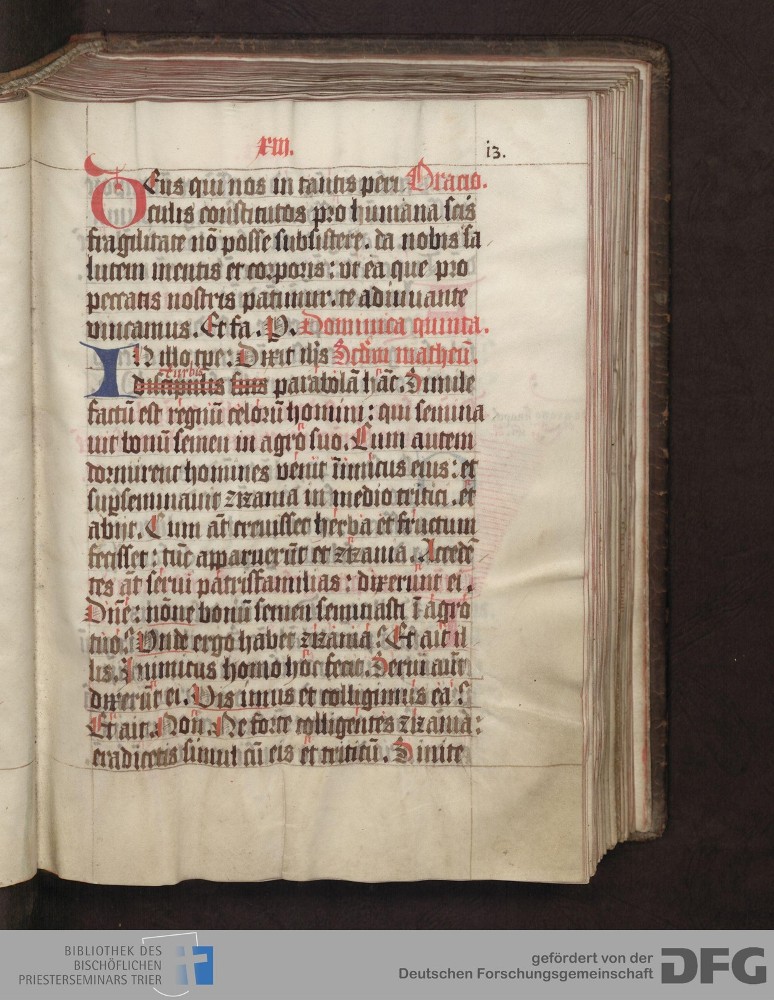 xiii. i3.
DEus qui nos in tantis peri Oracio.
culis constitutos pro humana scis
fragilitate nō posse subsistere. da nobis sa
lutem mentis et corporis: vt ea que pro
peccatis nostris patimur. te adiuuante
vincamus. Et fa. P. Dominica quinta.
IN illo tpe: Dixit ihs Scdm matheū.
turbis
discipulis suis parabolā hāc. Simile
factū est regnū celorū homini: qui semina
uit bonū semen in agro suo. Cum autem
dormirent homines venit īimicus eius: et
supseminauit zizania in medio tritici. et
abijt. Cum āt creuisset herba et fructum
fecisset: tūc apparuerūt et zizania. Accedē
tes āt serui patrisfamilias: dixerunt ei.
Dn̄e: nōne bonū semen seminasti ī agro
tuo? Unde ergo habet zizania? Et ait il
lis. Inimicus homo hoc fecit. Serui aūt
dixerūt ei. Vis imus et colligimus ea?
Et ait. Non. Ne forte colligentes zizania:
eradicetis simul cū eis et triticū. Sinite
BIBLIOTHEK DES
BISCHÖFLICHEN
PRIESTERSEMINARS TRIER
gefördert von der
Deutschen Forschungsgemeinschaft DFG